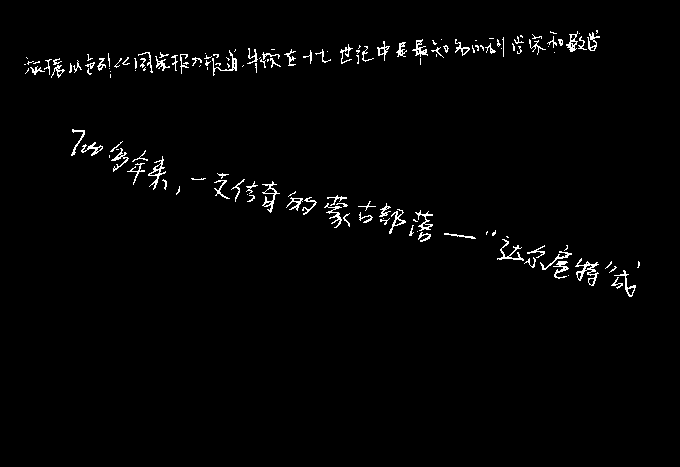 据以色列《国家报》报道,牛顿在十七世纪中是最知名的科学家和数学
700多年来，一支传奇的蒙古部落—“达尔扈特”式